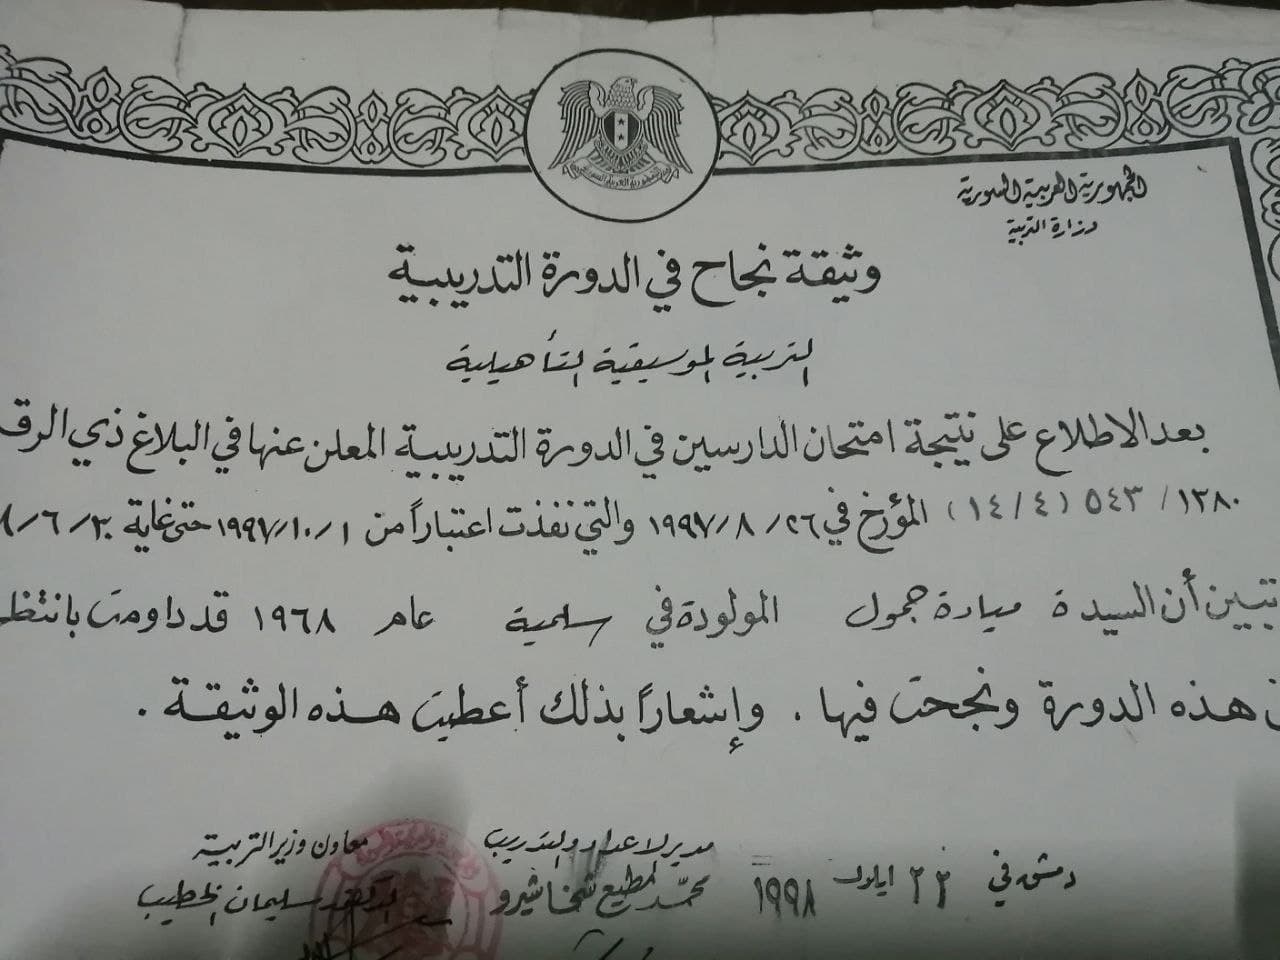 الجمهورية العربية السورية
وزارة التربية
وثيقة نجاح في الدورة التدريبية
التربية الموسيقية التأهيلية
بعد الاطلاع على نتيجة امتحان الدارسين في الدورة التدريبية المعلن عنها في البلاغ ذي الرق
١٣٨٠/ ٥٤٣ (١٤/٤) المؤرخ في ٢٦/ ٨/ ١٩٩٧ والتي نفذت اعتباراً من ١/ ١٠/ ١٩٩٧ حتى غاية ٣٠/ ٦/
تبين أن السيدة ميادة جمول المولودة في سلمية عام ١٩٦٨ قد داومت بانتظ
هذه الدورة ونجحت فيها . وإشعاراً بذلك أعطيت هذه الوثيقة .
دمشق في ٢٢ ايلول ١٩٩٨ مدير الاعداد والتدريب معاون وزير التربية
محمد مطيع شخاشيرو الدكتور سليمان الخطيب